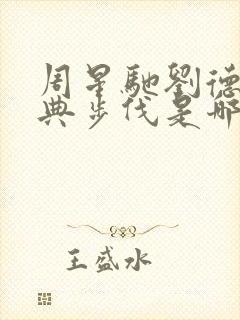 周星馳劉德
典步伐是哪
王盛水